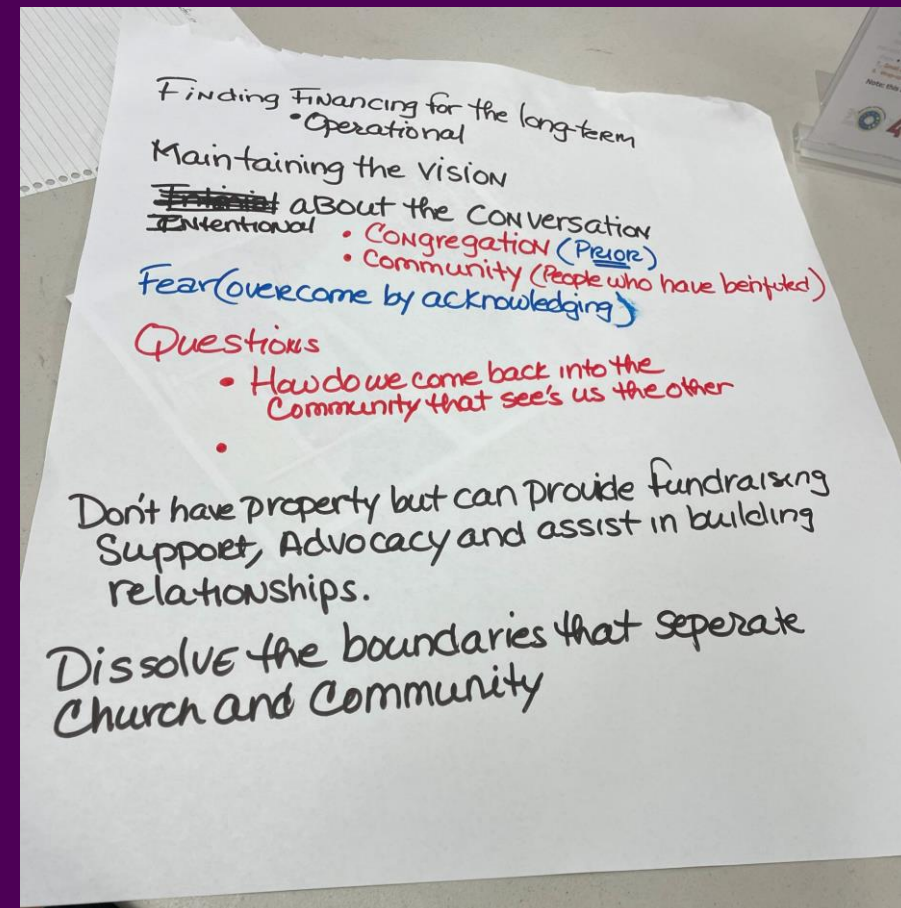 Finding Financing for the long-term
• Operational
Maintaining the vision
about the conversation
Intentional
• Congregation (Prior)
• Community (People who have)
Fear (overcome by acknowledging)
Questions
• How do we come back into the
Community that see's us the other
•
Don't have property but can provide fundraising
Support, Advocacy and assist in building
relationships.
Dissolve the boundaries that seperate
Church and Community
Note: this